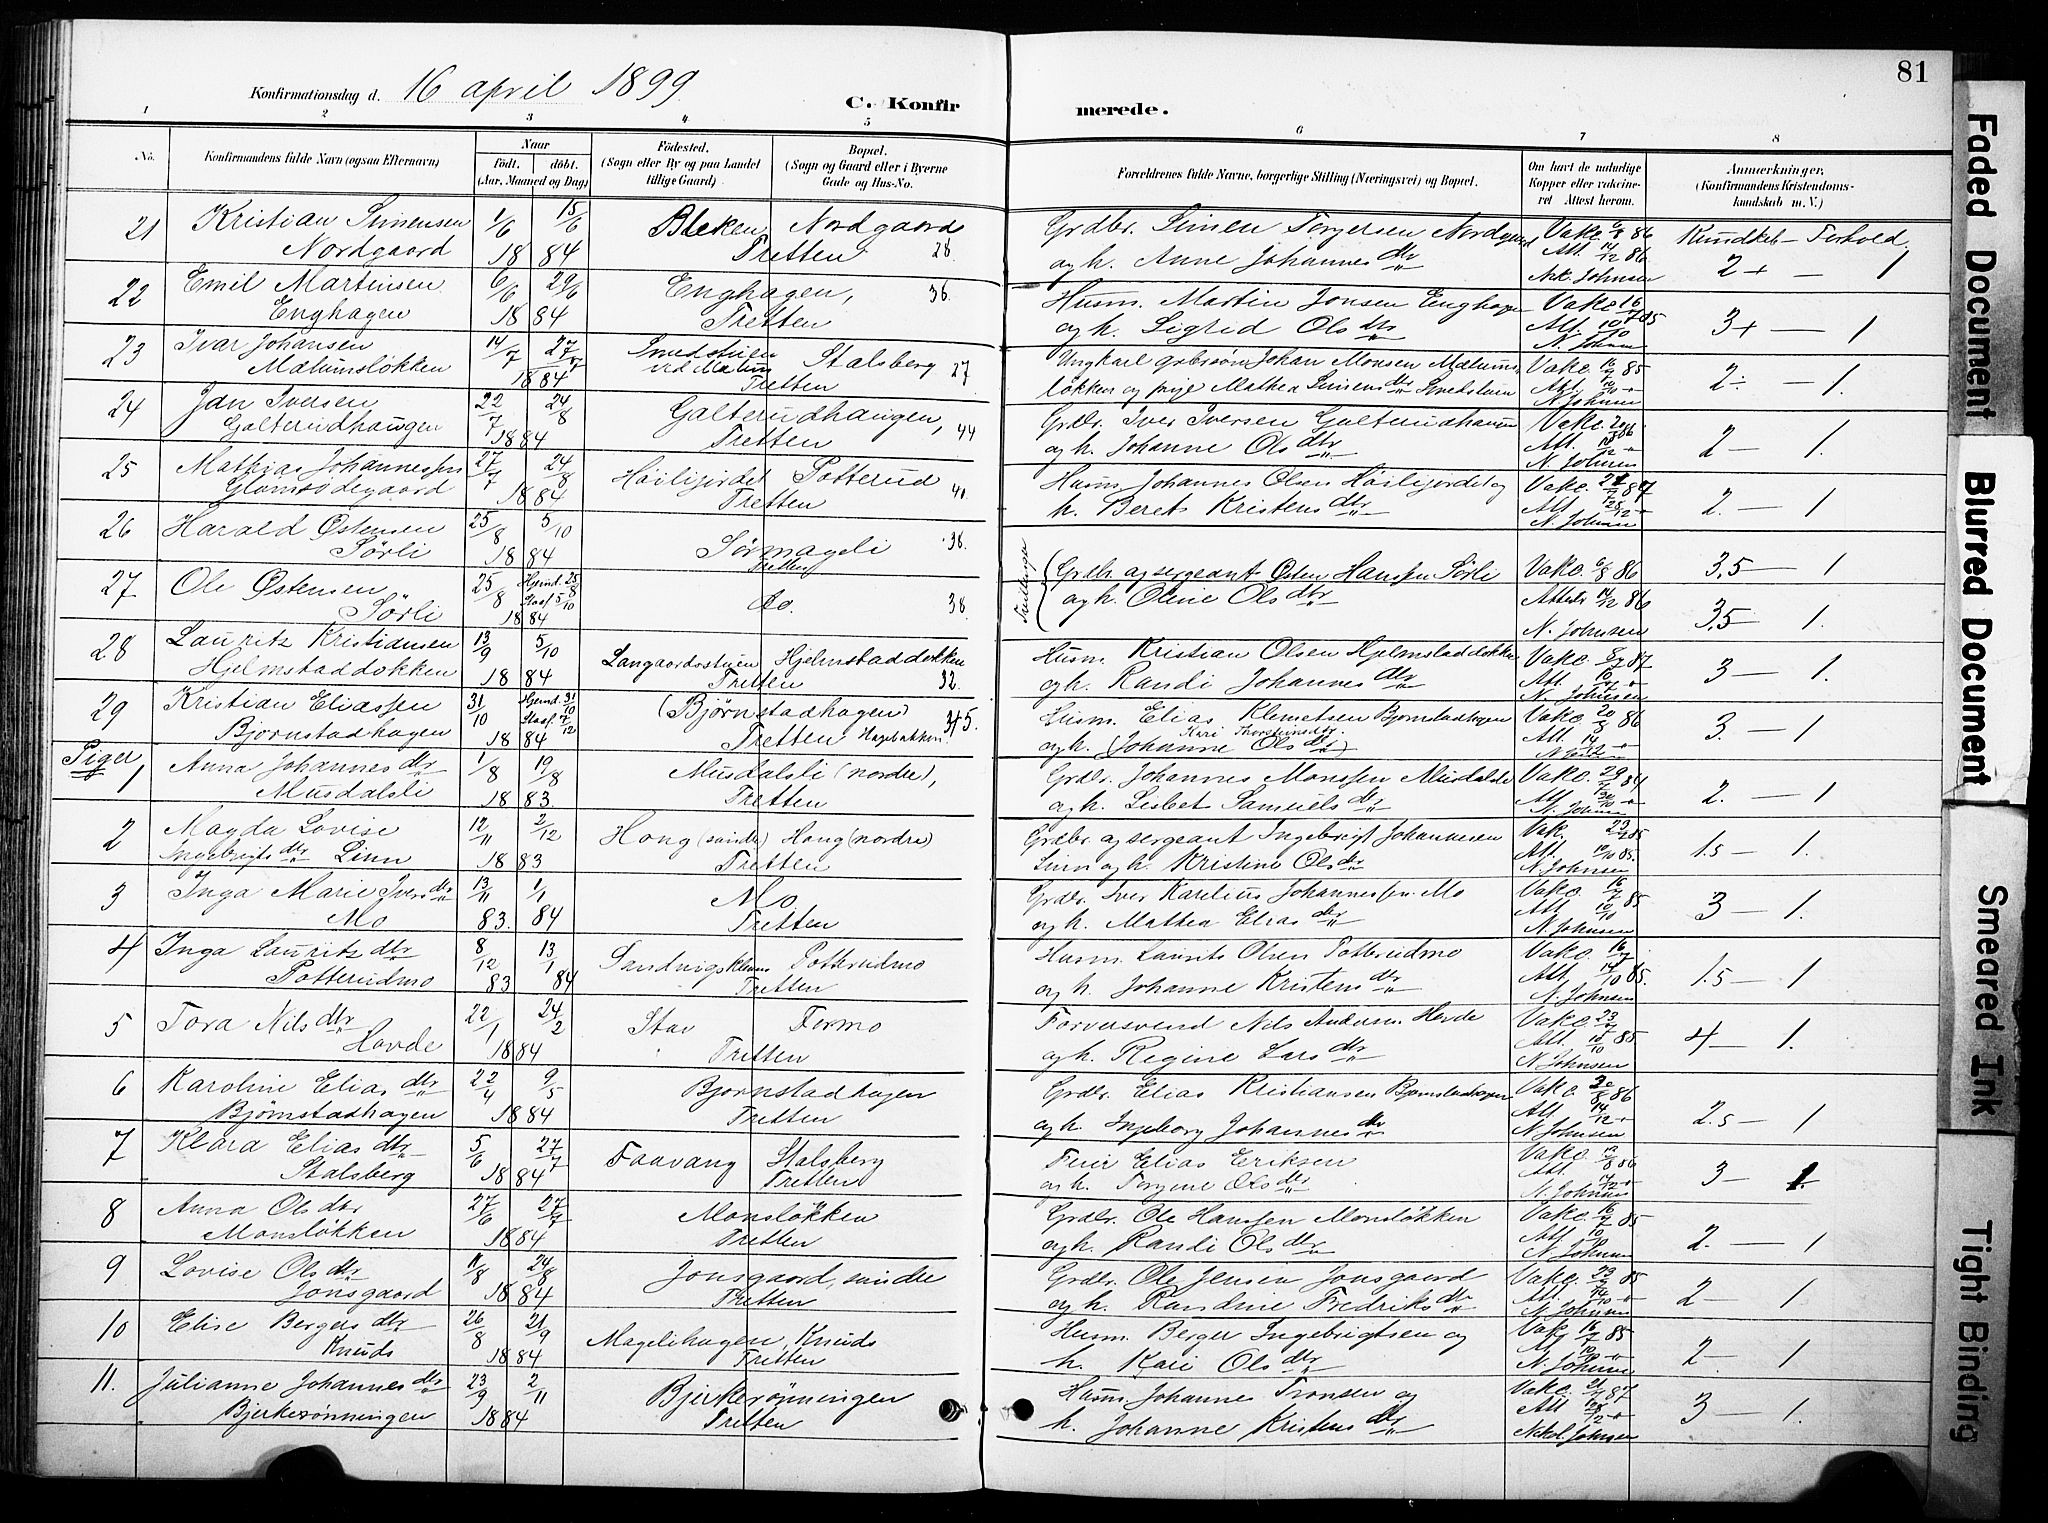 81
Konfirmationsdag d. 16 april 1899
C. Konfirmerede.
1 2 3 4 5 6 7 8
No.
Konfirmandens fulde Navn (ogsaa Efternavn)
Naar
født. døbt.
(Aar, Maaned og Dag)
Fødested.
(Sogn eller By og paa Landet tillige Gaard)
Bopæl.
(Sogn og Gaard eller i Byerne Gade og Hus-No.
Forældrenes fulde Navne, borgerlige Stilling (Næringsvei) og Bopæl.
Om havt de naturlige Kopper eller vakcineret. Attest herom.
Anmærkninger, (Konfirmandens Kristendomskundskab m. V.)
21 Kristian Simensen Nordgaard 1/6 15/6 1884 Bleken Nordgaard 28. Tretten Grdbr. Simen Torgersen Nordgaard og h. Anne Johannesdtr Vakc. 6/8 86 Att. 14/12 86 Nik. Johnsen Kundskb – Forhold, 2+ – 1
22 Emil Martinsen Enghagen 6/6 29/6 1884 Enghagen, 36. Tretten Husm. Martin Jonsen Enghagen og h. Sigrid Olsdtr Vakc. 16/7 85 Att. 10/10 N. Johnsen 3+ – 1
23 Ivar Johansen Mælumsløkken 14/7 27/7 1884 Smedstuen ved Mælum Stalsberg 27 Tretten Ungkarl Johan Monsen Mælumsløkken og pige Mathea Simensdtr Smedstuen Vakc. 16/7 85 Att. 10/10 N. Johnsen 2÷ – 1.
24 Jan Iversen Galterudhaugen 22/7 24/8 1884 Galterudhaugen, 44 Tretten Grdbr. Iver Iversen Galterudhaugen og h. Johanne Olsdtr Vakc. 86 Att. N. Johnsen 2 – 1.
25 Mathias Johannessen Glømsødegaard 27/7 24/8 1884 Høiligjordet Potterud 41. Tretten Husm. Johannes Olsen Høiligjordet og h. Beret Kristensdtr Vakc. 21/7 87 Att. 28/12 N. Johnsen 2. – 1
26 Harald Østensen Sørli 25/8 5/10 1884 Sørmageli 38. Tretten Grdbr. og sergeant Østen Hansen Sørli Vakc. 6/8 86 3,5 – 1
27 Ole Østensen Sørli 25/8 Hjemd. 25/8 Stadf. 5/10 1884 do. 38. og h. Oline Olsdtr Attest 14/12 86 N. Johnsen 3,5 – 1.
28 Lauritz Kristiansen Hjelmstadløkken 13/9 5/10 1884 Langaardsstuen Hjelmstadløkken Tretten 32. Husm. Kristian Olsen Hjelmstadløkken og h. Randi Johannesdtr Vakc. 8/7 87 Att. N. Johnsen 3 – 1
29 Kristian Eliassen Bjørnstadhagen 31/10 Hjemd. 31/10 Stadf. 7/12 1884 (Bjørnstadhagen) 35. Tretten Hagebakken Husm. Elias Klemetsen Bjørnstadhagen og h. (Johanne Olsdtr) Kari Thorsteinsdtr. Vakc. 20/8 86 Att. 14/12 N. Johnsen 3. – 1
Piger
1 Anna Johannesdtr Musdalsli 1/8 19/8 1883. Musdalsli (nordre), Tretten Grdbr. Johannes Monssen Musdalsli og h. Lisbet Samuelsdtr Vakc. 29/7 84 Att. N. Johnsen 2. – 1
2 Magda Lovise Ingebrigtsdtr Linn 12/11 2/12 1883 Hong (søndre) Hong (nordre) Tretten Grdbr. og sergeant Ingebrigt Johannesen Linn og h. Kristine Olsdtr Vak. 23/7 85 Att. 10/10 85. N. Johnsen 1.5 – 1.
3 Inga Marie Iversdtr Mo 13/11 83. 1/1 84 Mo Tretten Grdbr. Iver Karelius Johannessen Mo og h. Mathea Eliasdtr Vakc. 16/7 85 Att. 10/10 N. Johnsen 3 – 1.
4 Inga Lauritzdtr Potterudmo 8/12 83 13/1 84 Sandvigsklemma Potterudmo Tretten Husm. Laurits Olsen Potterudmo og h. Johanne Kristensdtr Vakc. 16/7 Att. 14/10 85. N. Johnsen 1.5 – 1
5 Tora Nilsdtr Hovde 22/1 24/2 1884 Stav Formo Tretten Farversvend Nils Andersen Hovde og h. Regine Larsdtr Vakc. 23/7 85 Att. 10/10 N. Johnsen 4 – 1.
6 Karoline Eliasdtr Bjørnstadhagen 22/4 9/5 1884 Bjørnstadhagen Tretten Grdbr. Elias Kristiansen Bjørnstadhagen og h. Ingeborg Johannesdtr Vakc. 20/8 86 Att. 14/12 N. Johnsen 2.5 – 1
7 Klara Eliasdtr Stalsberg 5/6 27/7 1884 Faavang Stalsberg Tretten Feier Elias Eriksen og h. Torgine Olsdtr Vakc. 86 Att. 14/12 N. Johnsen 3 – 1.
8 Anna Olsdtr Monsløkken 27/6 27/7 1884 Monsløkken Tretten Grdbr. Ole Hanssen Monsløkken og h. Randi Olsdtr Vakc. 16/7 85 Att. 10/10 N. Johnsen 2. – 1
9 Lovise Olsdtr Jonsgaard 11/8 24/8 1884 Jonsgaard, søndre Tretten Grdbr. Ole Jensen Jonsgaard og h. Randine Fredriksdtr Vakc. 23/7 85 Att. 14/10 N. Johnsen 2 – 1
10 Elise Bergersdtr Knuds 26/8 21/9 1884 Magelihagen, Knuds Tretten Husm. Berger Ingebrigtsen og h. Kari Olsdtr Vakc. 16/7 85 Att. N. Johnsen 2 – 1
11. Julianne Johannesdtr Bjerkerønningen 23/9 2/11 1884 Bjerkerønningen Tretten Husm. Johannes Tronsen og h. Johanne Kristensdtr Vakc. 21/7 87 Att. 28/12 Nikol. Johnsen 3 – 1.
Faded Document
Blurred Document
Smeared Ink
Tight Binding